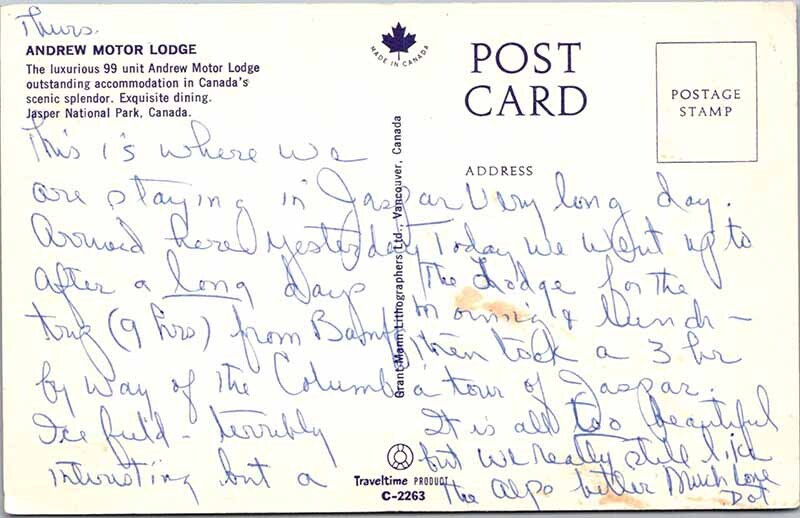 Thurs.
ANDREW MOTOR LODGE
The luxurious 99 unit Andrew Motor Lodge
outstanding accommodation in Canada's
scenic splendor. Exquisite dining.
Jasper National Park, Canada.
This is where we
are staying in Jaspar
Arrived here yesterday
after a long days
trip (9 hrs) from Bamff
by way of the Columbia
Ice field - terribly
interesting but a
MADE IN CANADA
Grant-Mann Lithographers Ltd., Vancouver, Canada
Traveltime PRODUCT
C-2263
POST
CARD
POSTAGE
STAMP
ADDRESS
Very long day.
Today we went up to
The Lodge for the
morning & Lunch -
then took a 3 hr
tour of Jaspar.
It is all too beautiful
but we really still like
the alps better Much Love
Dot